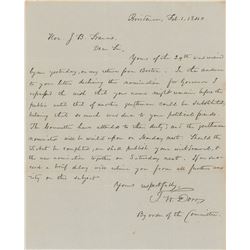 Providence, Feb. 1, 1840
Hon. J. B. Francis,
Dear Sir,
Yours of the 29th was received
by me yesterday, on my return from Boston. In the answer
to your letter declining the nomination for
Governor I expressed the wish that your name might remain before the
public until that of another gentleman could be substituted,
taking that as much was due to your political friends.
The Committee have attended to this duty; and the gentleman
nominated will be upon on Monday next. Should the
Ticket be completed, we shall publish your withdrawal, &
the new nomination together on Saturday next. If we do not
need a brief delay will relieve you from all further anx-
iety on this subject.
Yours respectfully,
T. W. Dorr,
By order of the Committee.